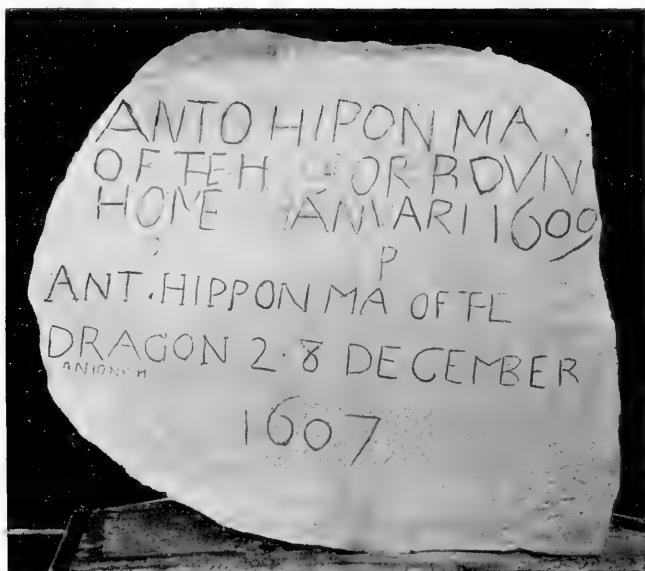 ANTO HIPON MA
OF TEH HOR BOVN
HOME IANVARI 1609
P
ANT. HIPPON MA OF TE
DRAGON 2·8 DECEMBER
ANTONY H
1607